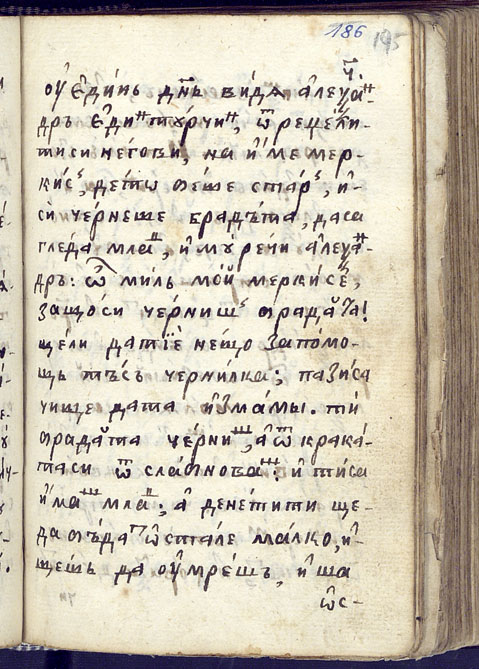 186
195
ч҃.
оу̓ є҆ди́нь дн҃ь видѧ а҆леѯа́н-
дръ є҆дин тꙋ́рчин, ѿ рецепи-
тиси негови, на и҆ме мер-
ки́с, детѡ беше ста́р, и҆-
си че́рнеше брадъта, даса
гле́да млад, и҆ мꙋ ре́чи а҆леѯан-
дръ: ѽ миль мо́й меркисе,
защо́си че́рниш брада́та!
щели дати́е нещо запомо-
щь тъсъ чернилка; па зиса
чище дата и҆зма́мы. ти
брада́та черниш, а҆ ѿ крака́-
таси ѿ слабноваш: и҆ тиса
и҆маш млад; а҆ дене́тити ще-
да бъдат ѡ҆ста́ле ма́лко, и҆-
щешь да оу҆мре́шъ, и҆ ша
ѡ҆с-